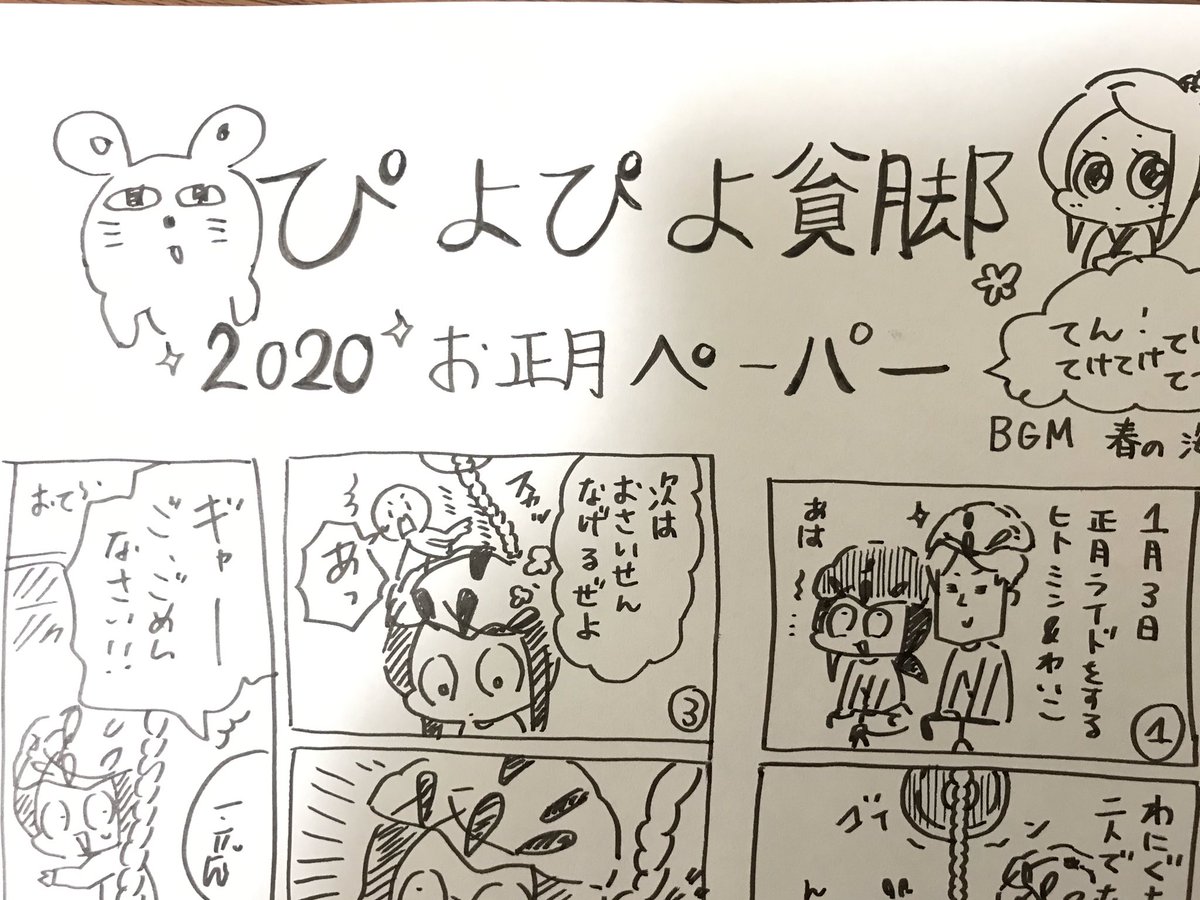 ぴよぴよ貧脚
2020お正月ペーパー
てん！
てけてけ
BGM 春の海
1月3日
正月ライドをする
ヒトミン&わいこ
あは
①
わにぐち
二人でな
次は
おさいせん
なげるぜよ
あっ
③
ギャー
ご、ごめん
なさい!!
おて